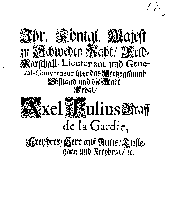 Ihr. Königl. Majest
zu Schweden Raht/ Feld-
Marschall-Lieutenant und Gene-
ral-Gouverneur über das Hertzogthumb
Ehstland und die Stadt
Reval/
Axel Julius Graff
de la Gardie,
Freyherr/ Herr auff
und Freyherr/ ec.